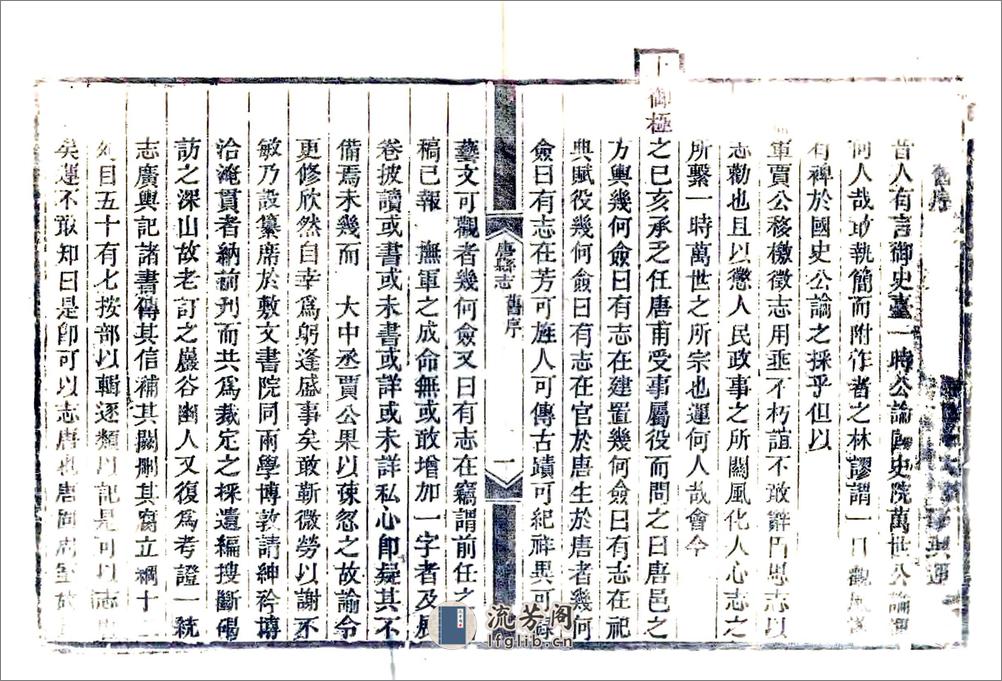 舊序
昔人有言御史臺一時公論國史院萬世公論
何人哉敢執簡而附作者之林謬謂一日觀風
有裨於國史公論之採乎但以
軍賈公移檄徵志用垂不朽誼不敢辭円思志以
志勸也且以懲人民政事之所關風化人心志之
所繫一時萬世之所宗也運何人哉會今
上御極
之己亥承乏任唐甫受事屬役而問之曰唐邑之
方輿幾何僉曰有志在建置幾何僉曰有志在祀
典賦役幾何僉曰有志在官於唐生於唐者幾何
僉曰有志在芳可旌人可傳古蹟可紀祥異可錄
唐縣志
舊序
一
藝文可觀者幾何僉又曰有志在竊謂前任之
稿已報 撫軍之成命無或敢增加一字者及展
卷披讀或書或未書或詳或未詳私心卽疑其不
備焉未幾而 大中丞賈公果以疎忽之故諭令
更修欣然自幸爲躬逢盛事矣敢靳微勞以謝不
敏乃設纂席於敷文書院同兩學博敦請紳衿博
洽淹貫者納前刋而共爲裁定之採遺編搜斷碣
訪之深山故老訂之巖谷幽人又復爲考證一統
志廣輿記諸書傳其信補其闕刪其腐立綱十二
列目五十有七按部以輯逐類以記是可以志
矣運不敢知曰是卽可以志唐也唐
流芳阁
lfglib.cn